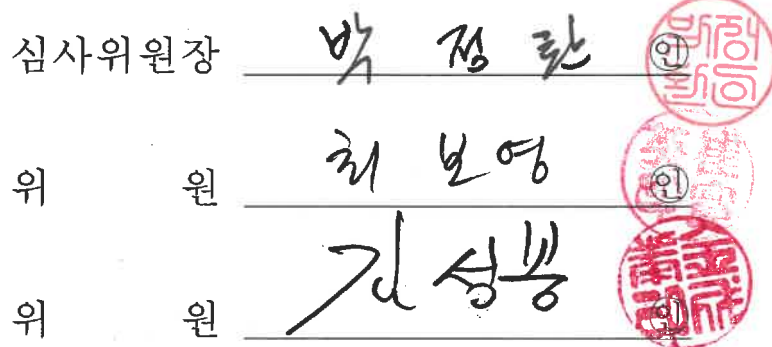 심사위원장 박 정 란 ㊞
위 원 최 보 영 ㊞
위 원 김 성 봉 ㊞